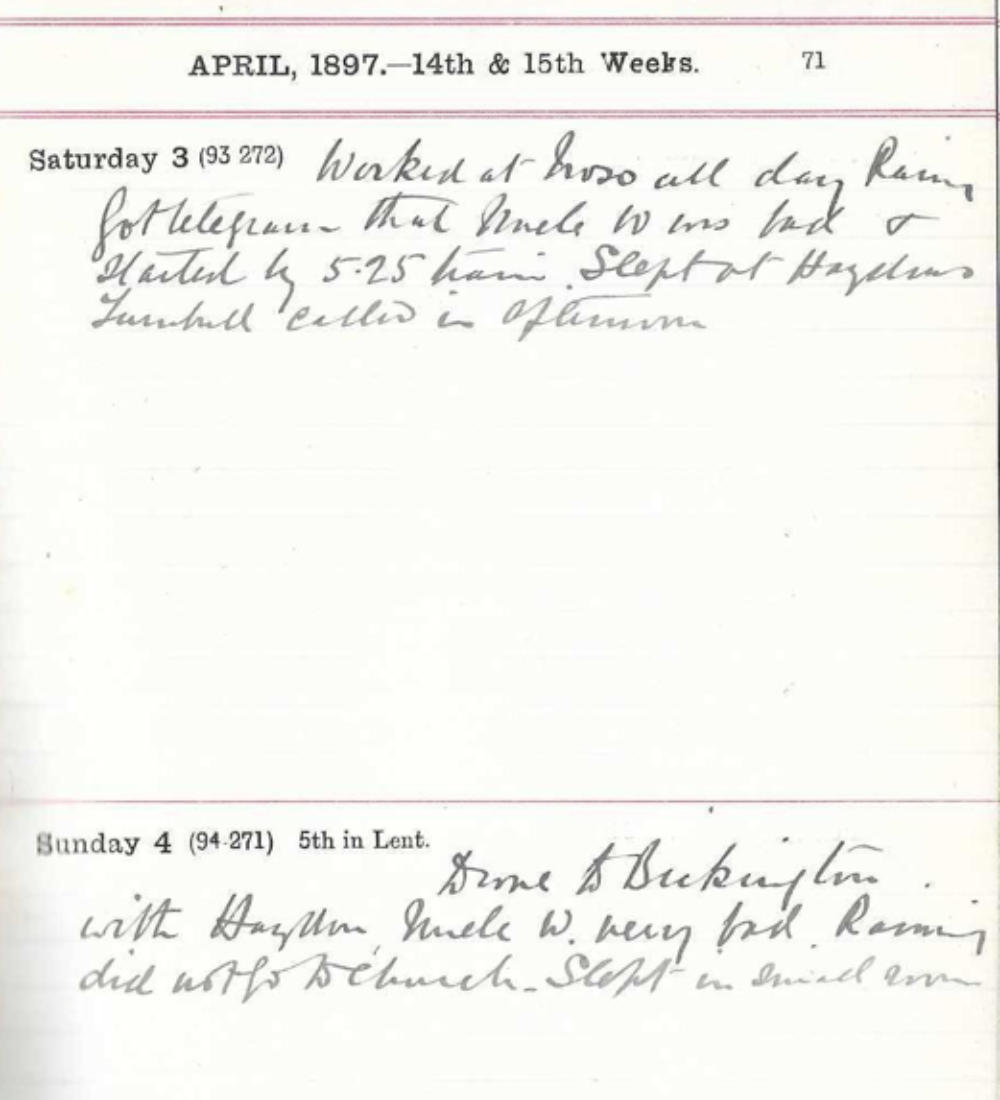 APRIL, 1897.—14th & 15th Weeks. 71
Saturday 3 (93 272) Worked at all day Rainy
Got telegram that Uncle W was bad &
started by 5.25 train. Slept at Haydons
Turnbull called in afternoon
Sunday 4 (94-271) 5th in Lent.
Drove to Beckington.
with Haydon, Uncle W. very bad. Raining
did not go to Church - Slept in small room